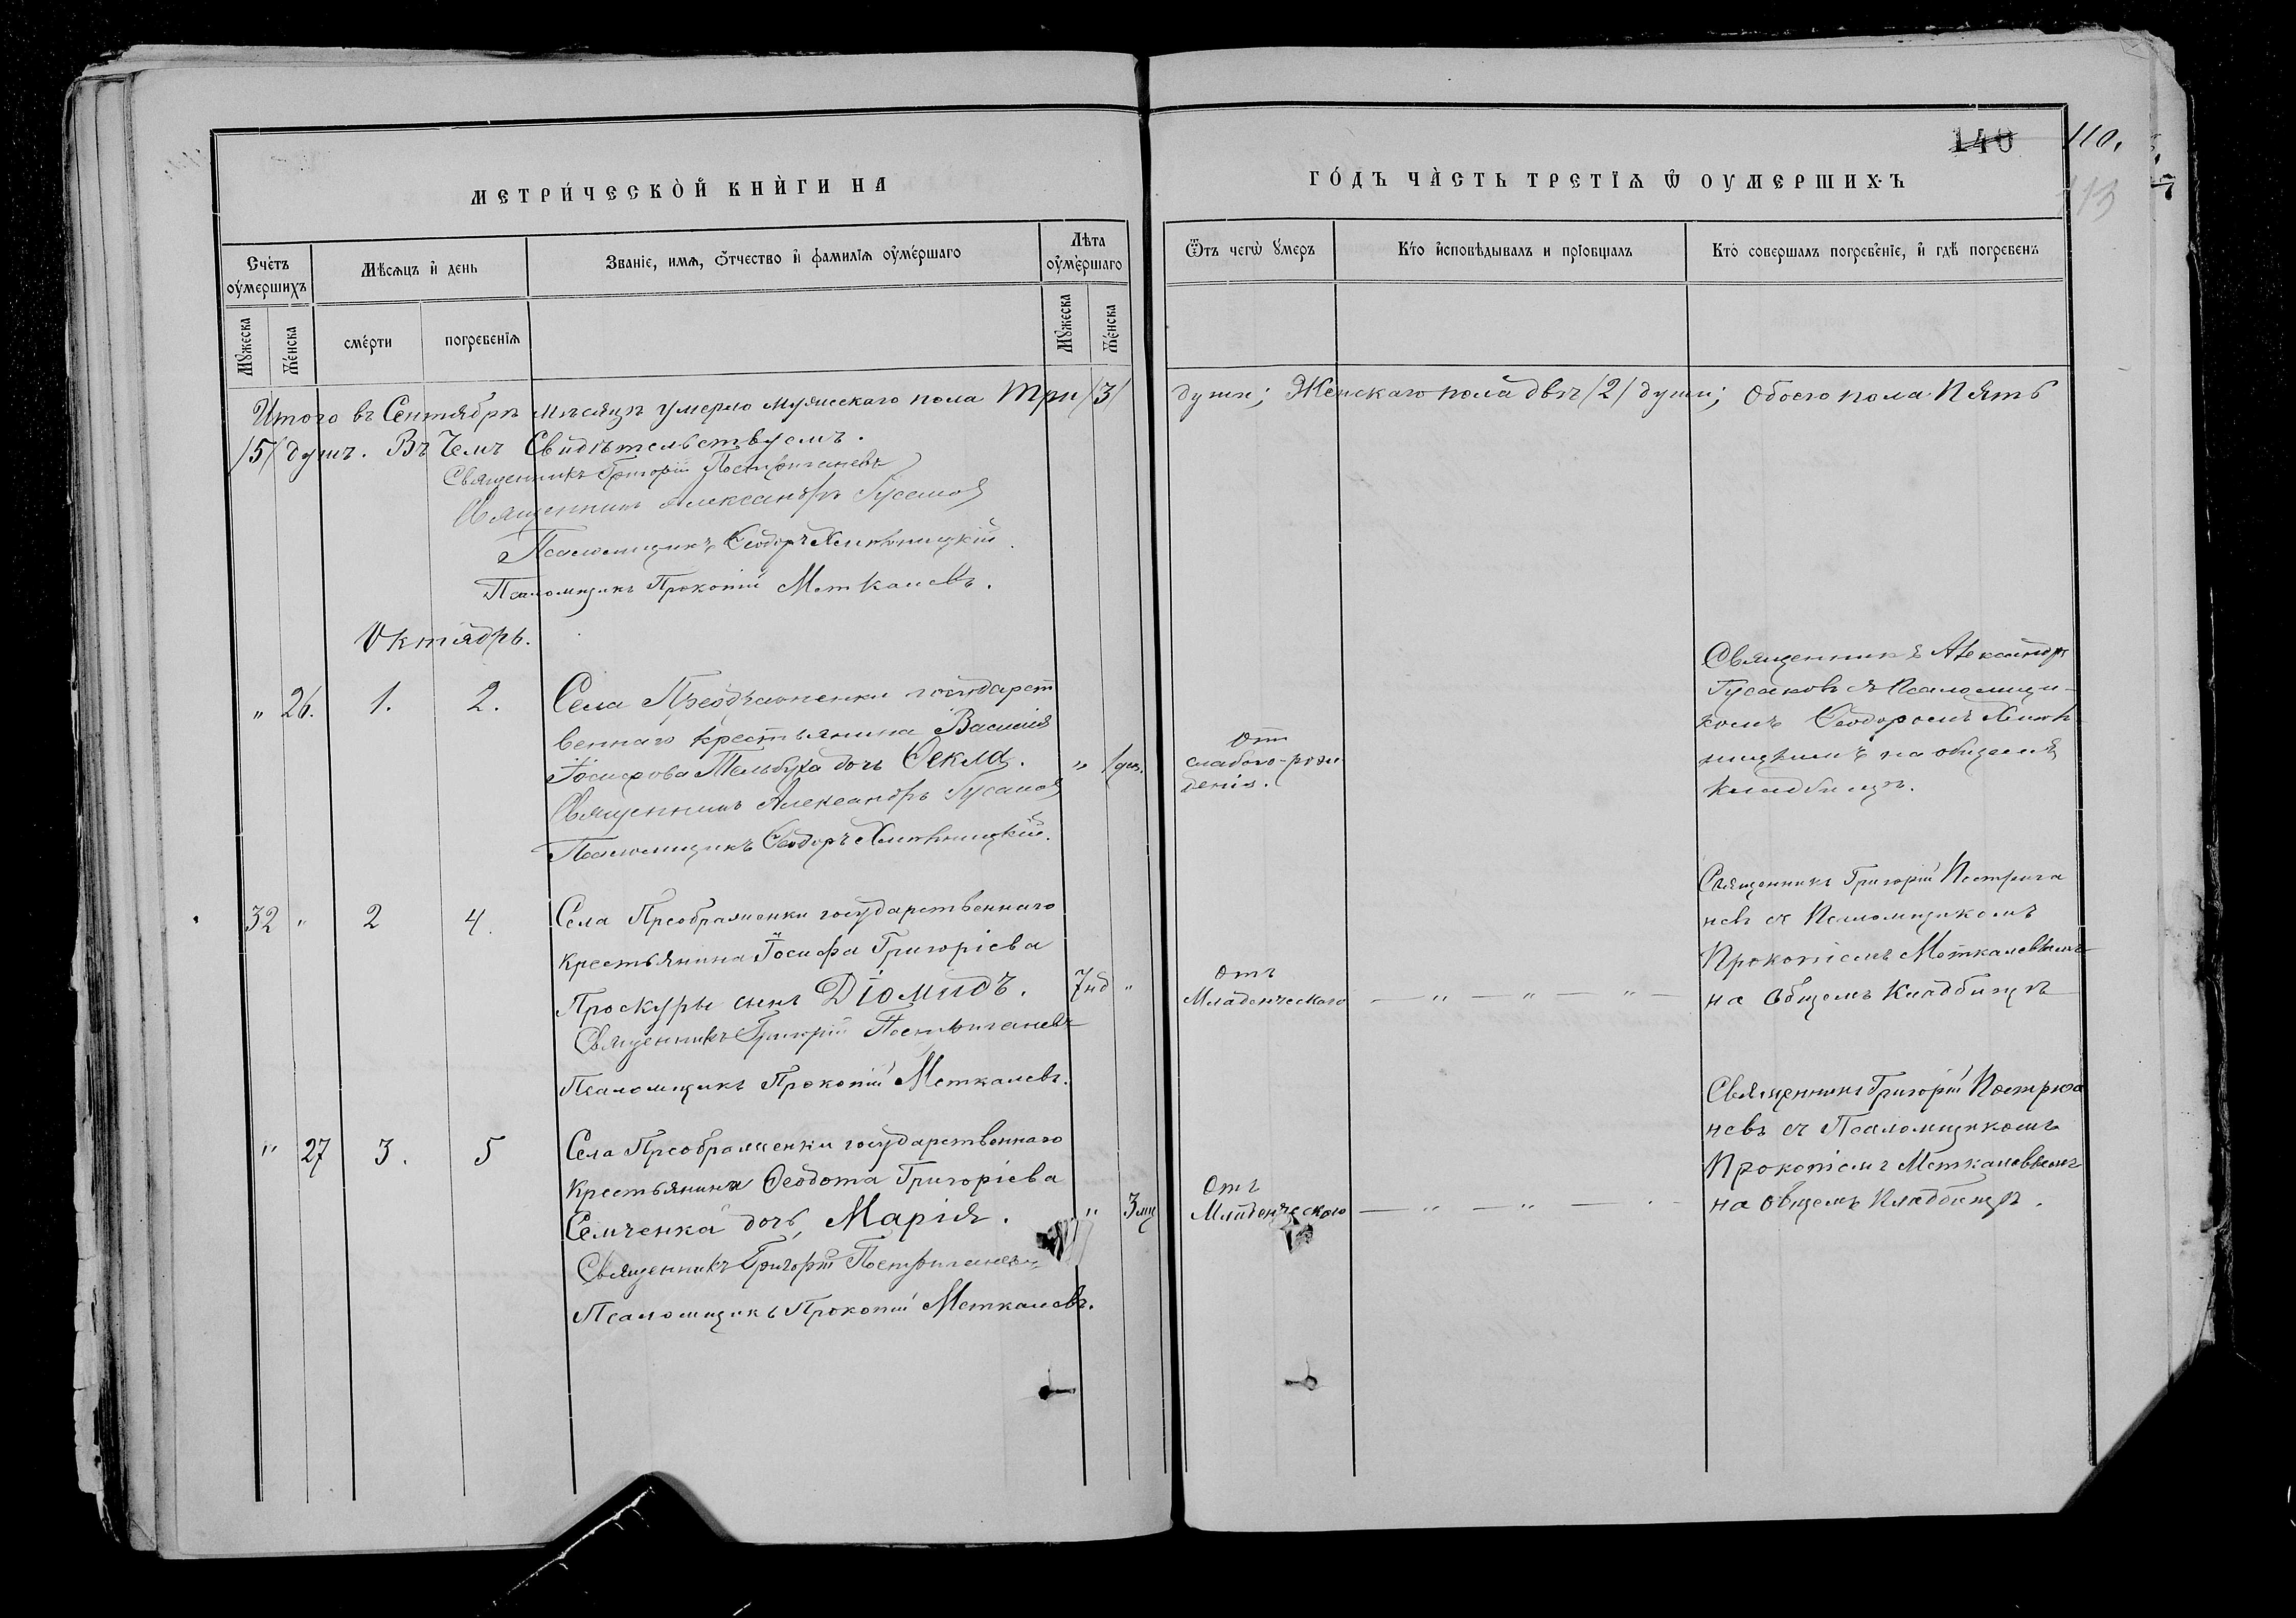 140 110.
113
МЕТРИ́ЧЕСКОЙ КНИ́ГИ НА
ГО́ДЪ ЧА́СТЬ ТРЕТІѦ Ѿ ОУМЕРШИХЪ
Сче́тъ оу҆мершихъ
Мѣсѧцъ и҆ день
Званіе, имѧ, о҆тчество и҆ фамилїѧ оу҆ме́ршаго
Лѣта оу҆ме́ршаго
Ѿтъ чегѡ̀ ᲂу҆меръ
Кто̀ и҆сповѣдывалъ и прїобщалъ
Кто̀ совершалъ погребе́нїе, и҆ гдѣ̀ погребенъ
Мꙋжеска
Же́нска
сме́рти
погребенїѧ
Мꙋжеска
Же́нска
Итого въ Сентябрѣ мѣсяцѣ умерло мужескаго пола три /3/ души; Женскаго пола двѣ /2/ души; обоего пола пять
/5/ душъ. Въ чемъ свидѣтельствуемъ.
Священникъ Григорій Постригачевъ
Священникъ Александръ Гусаковъ
Псаломщикъ Ѳеодоръ Хмѣльницкій.
Псаломщикъ Прокопій Меткалевъ.
Октябрь.
" 26. 1. 2.
Села Преображенки государст
веннаго крестьянина Василія
Іосифова Тельбуха дочь Ѳекла.
Священникъ Александръ Гусаковъ
Псаломщикъ Ѳеодоръ Хмѣльницкій.
" 1 дн.
Отъ
слабого-рож
денія.
Священникъ Александръ
Гусаковъ съ Псаломщи-
комъ Ѳеодоромъ Хмѣль
ницкимъ на общемъ
кладбищѣ.
32 " 2 4.
Села Преображенки государственнаго
крестьянина Іосифа Григоріева
Проскуры сынъ Діомидъ.
Священникъ Григорій Постригачевъ
Псаломщикъ Прокопій Меткалевъ.
7 нд "
отъ
Младенческаго — " — " — " —
Священникъ Григорій Пострига
чевъ съ Псаломщикомъ
Прокопіемъ Меткалевымъ
на общемъ кладбищѣ
" 27 3. 5
Села Преображенки государственнаго
крестьянина Ѳеодота Григоріева
Семченка дочь, Марія.
Священникъ Григорій Постригачевъ
Псаломщикъ Прокопій Меткалевъ.
" 3 мц
Отъ
Младенческаго — " — " —
Священникъ Григорій Пострига
чевъ съ Псаломщикомъ
Прокопіемъ Меткалевымъ
на общемъ кладбищѣ.